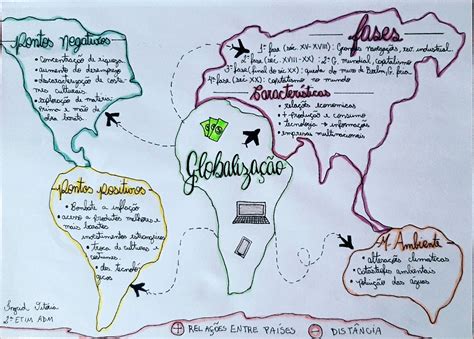 Pontos Negativos
• Concentração de riqueza
• aumento do desemprego
• descaracterização de costu
mes culturais
• exploração de matéria
prima e mão de
obra barata
fases
1ª fase (séc XV-XVIII): Grandes navegações, rev. industrial.
2ª fase (séc XX): 2ª G. mundial, capitalismo
3ª fase (final do séc XX): queda do muro de Berlim, G. fria
4ª fase: capitalismo no mundo
Características
• relações econômicas
• + produção e consumo
• tecnologia → informações
• empresas multinacionais
Globalização
Pontos positivos
• Combate a inflação
• acesso a produtos melhores e
mais baratos
• investimentos estrangeiros
• troca de culturas e
costumes.
• des. tecnoló
gicos
M. Ambiente
• alterações climáticas
• catástrofes ambientais
• poluição das águas
Ingrid
2º ETIM ADM
+ RELAÇÕES ENTRE PAÍSES
- DISTÂNCIA